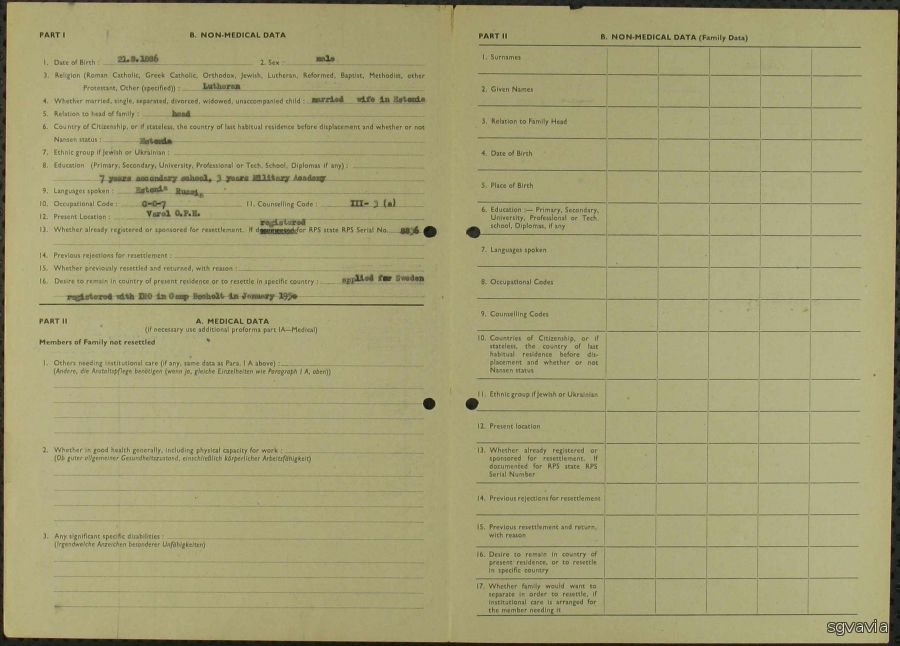 PART I
B. NON-MEDICAL DATA
1. Date of Birth : 21.8.1886 2. Sex : male
3. Religion (Roman Catholic, Greek Catholic, Orthodox, Jewish, Lutheran, Reformed, Baptist, Methodist, other
Protestant, Other (specified)) : Lutheran
4. Whether married, single, separated, divorced, widowed, unaccompanied child : married wife in Estonia
5. Relation to head of family : head
6. Country of Citizenship, or if stateless, the country of last habitual residence before displacement and whether or not
Nansen status : Estonia
7. Ethnic group if Jewish or Ukrainian :
8. Education (Primary, Secondary, University, Professional or Tech. School, Diplomas if any) :
7 years secondary school, 3 years Military Academy
9. Languages spoken : Estonia Russia
10. Occupational Code : 0-0-7 11. Counselling Code : III- 3 (a)
12. Present Location : Varel O.P.H.
registered
13. Whether already registered or sponsored for resettlement. If for RPS state RPS Serial No. 8836
14. Previous rejections for resettlement :
15. Whether previously resettled and returned, with reason :
16. Desire to remain in country of present residence or to resettle in specific country : applied for Sweden
registered with IRO in Camp Bocholt in January 1950
PART II
A. MEDICAL DATA
(if necessary use additional proforma part IA—Medical)
Members of Family not resettled
1. Others needing institutional care (if any, same data as Para. I A above) :
(Andere, die Anstaltspflege benötigen (wenn ja, gleiche Einzelheiten wie Paragraph I A, oben))
2. Whether in good health generally, including physical capacity for work :
(Ob guter allgemeiner Gesundheitszustand, einschließlich körperlicher Arbeitsfähigkeit)
3. Any significant specific disabilities :
(Irgendwelche Anzeichen besonderer Unfähigkeiten)
PART II
B. NON-MEDICAL DATA (Family Data)
1. Surnames
2. Given Names
3. Relation to Family Head
4. Date of Birth
5. Place of Birth
6. Education — Primary, Secondary,
University, Professional or Tech.
school, Diplomas, if any
7. Languages spoken
8. Occupational Codes
9. Counselling Codes
10. Countries of Citizenship, or if
stateless, the country of last
habitual residence before dis-
placement and whether or not
Nansen status
11. Ethnic group if Jewish or Ukrainian
12. Present location
13. Whether already registered or
sponsored for resettlement. If
documented for RPS state RPS
Serial Number
14. Previous rejections for resettlement
15. Previous resettlement and return,
with reason
16. Desire to remain in country of
present residence, or to resettle
in specific country
17. Whether family would want to
separate in order to resettle, if
institutional care is arranged for
the member needing it
sgvavia